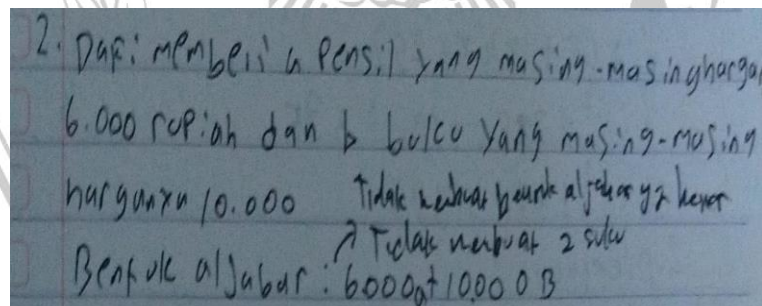 2. Dafi membeli a Pensil yang masing-masing harga
6.000 rupiah dan b buku yang masing-masing
harganya 10.000 Tidak membuat bentuk aljabar yg benar
Tidak membuat 2 suku
Bentuk aljabar : 6000a + 10000 B